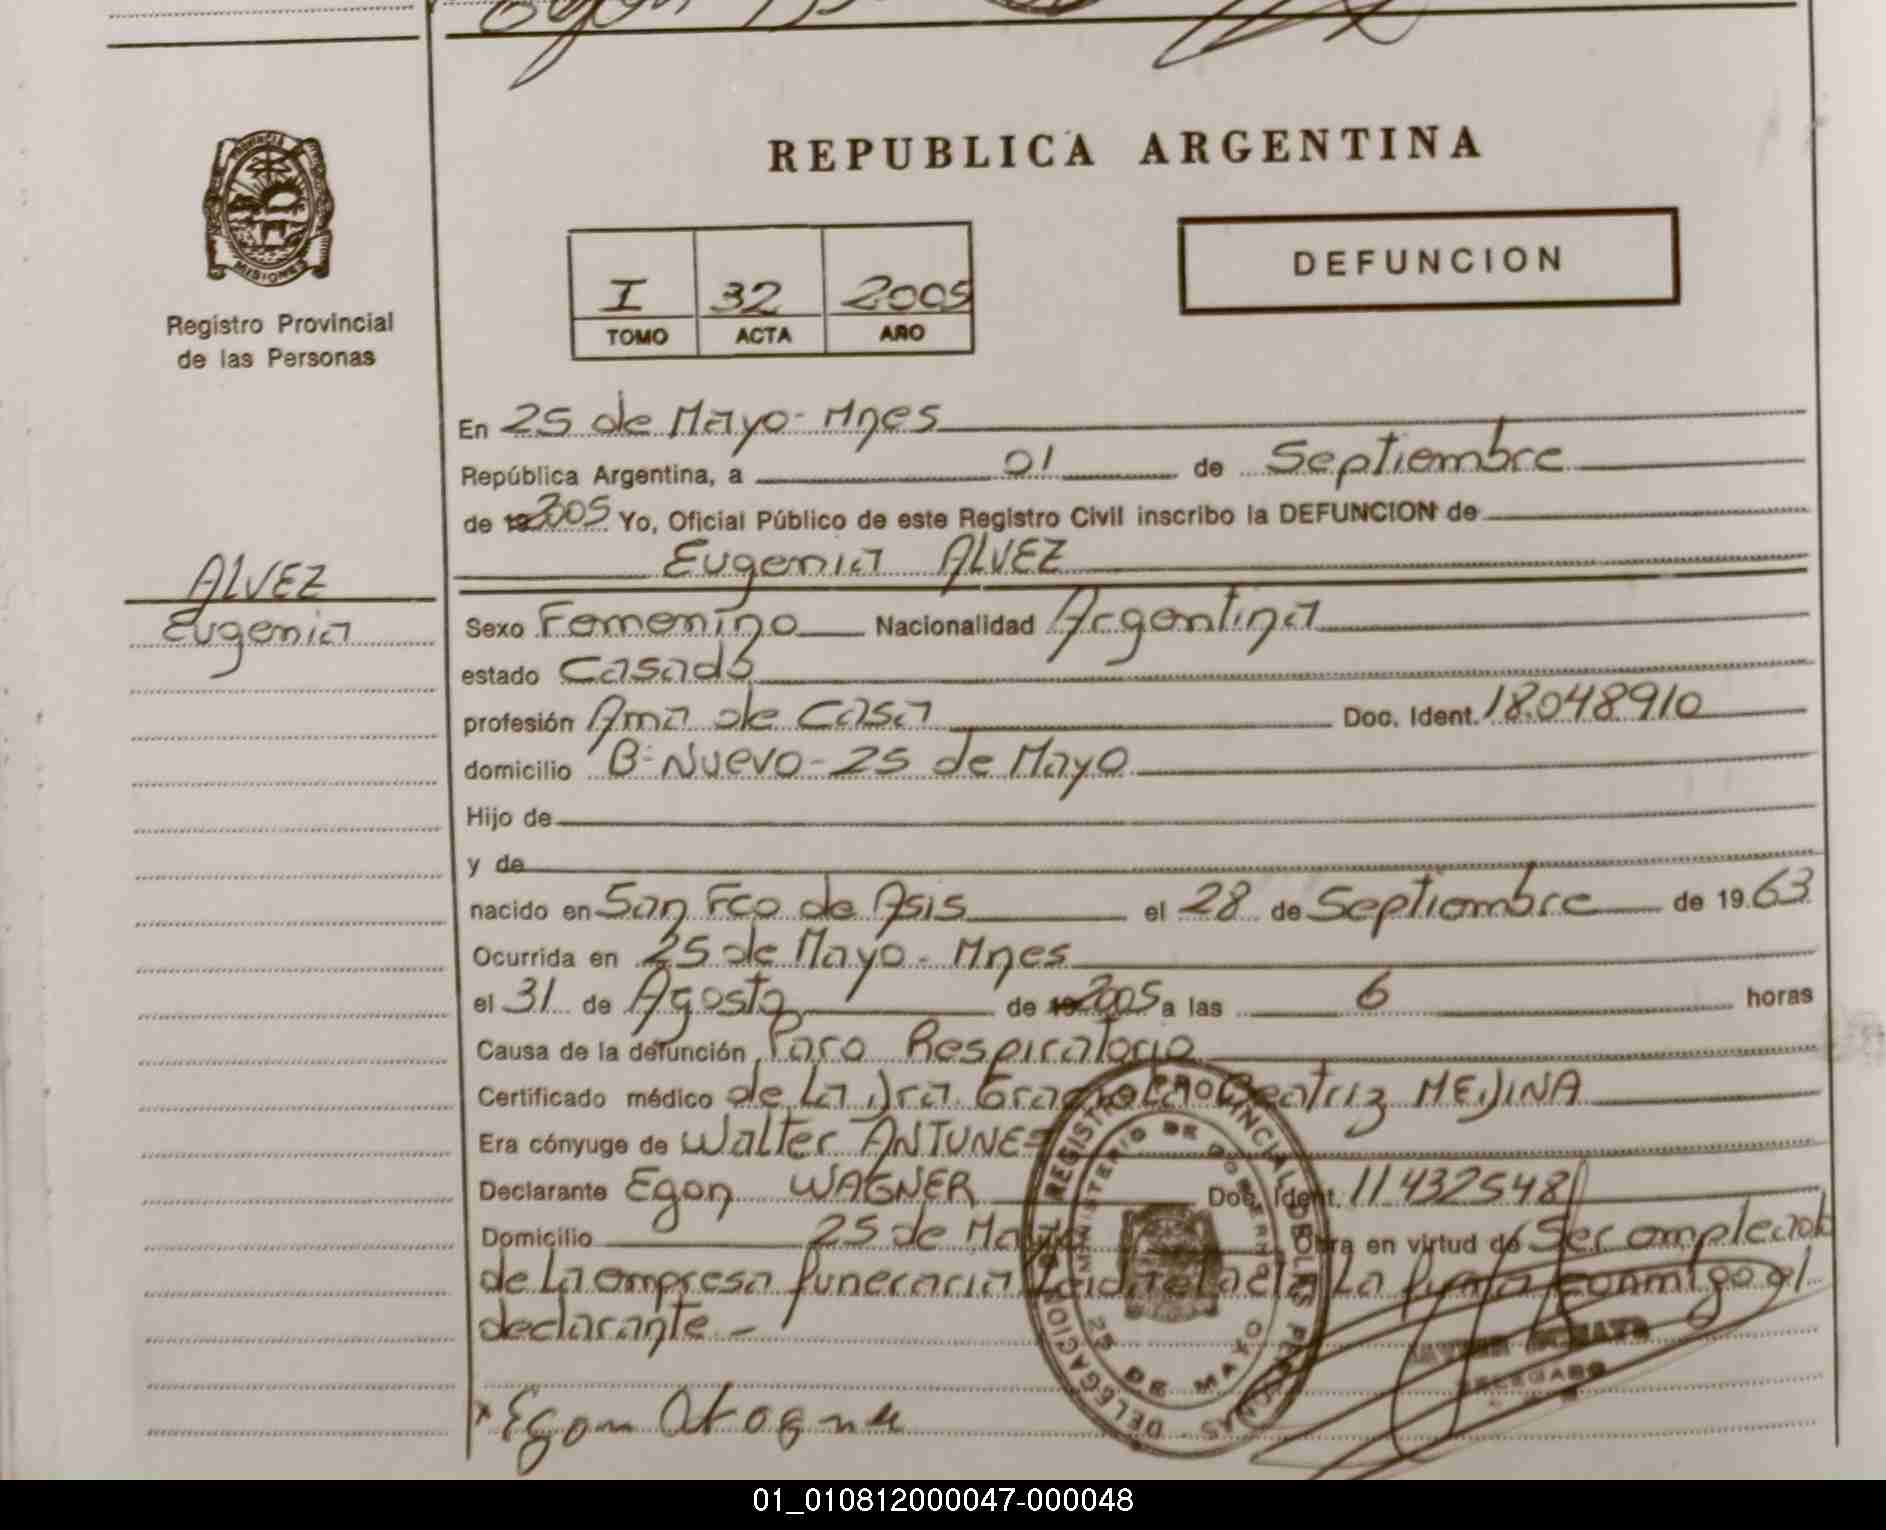 REPUBLICA ARGENTINA
PROVINCIA
MISIONES
Registro Provincial
de las Personas
DEFUNCION
I 32 2005
TOMO ACTA AÑO
En 25 de Mayo - Mnes
República Argentina, a 01 de Septiembre
de 19 2005 Yo, Oficial Público de este Registro Civil inscribo la DEFUNCION de
Eugenia ALVEZ
ALVEZ
Eugenia
Sexo Femenino Nacionalidad Argentina
estado Casado
profesión Ama de Casa Doc. Ident. 18.048910
domicilio Bº Nuevo - 25 de Mayo
Hijo de
y de
nacido en San Fco de Asis el 28 de Septiembre de 19 63
Ocurrida en 25 de Mayo - Mnes
el 31 de Agosto de 19 2005 a las 6 horas
Causa de la defunción Paro Respiratorio
Certificado médico de La Dra. Graciela Beatriz MEDINA
Era cónyuge de Walter ANTUNES
Declarante Egon WAGNER Doc. Ident. 11432548
Domicilio 25 de Mayo Obra en virtud de Ser empleado
de La empresa funeraria La firma conmigo el
declarante -
REGISTRO PROVINCIAL DE LAS PERSONAS
MINISTERIO DE GOBIERNO
25 DE MAYO
DELEGACION
DELEGADO
x Egon
01_010812000047-000048